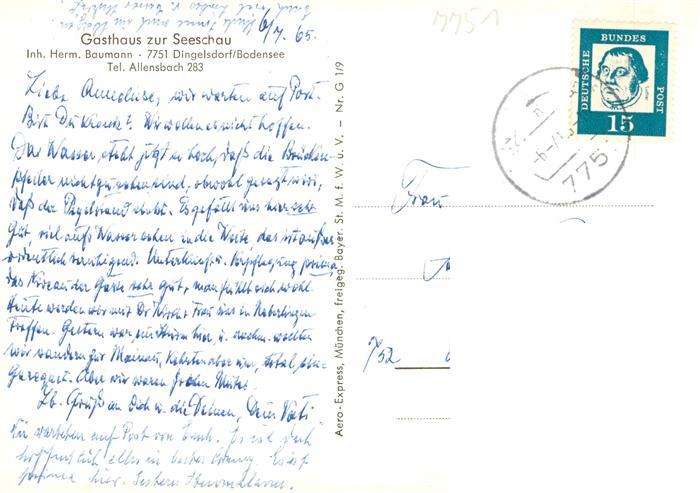 6/7. 65.
7751
Gasthaus zur Seeschau
Inh. Herm. Baumann · 7751 Dingelsdorf/Bodensee
Tel. Allensbach 283
Liebe Anneliese, wir warten auf Post.
Bist Du krank? Wir wollen es nicht hoffen.
Das Wasser steht jetzt so hoch, daß die Brücken-
pfeiler nicht zu sehen sind, obwohl gesagt wird,
daß der Pegelstand sinkt. Es gefällt uns hier sehr
gut, viel aufs Wasser sehen in die Weite das ist außer
ordentlich beruhigend. Unterkunft u. Verpflegung prima,
das Niveau der Gäste sehr gut, man fühlt sich wohl.
Heute werden wir mit Dr Frau uns in Ueberlingen
treffen. Gestern war ein Sturm hier u. nachm. wollten
wir wandern zur Mainau, kehrten aber um, total ein-
geregnet. Aber wir waren frohen Mutes.
Lb. Gruß an Dich u. die Deinen, Dein Vati
Wir warten auf Post von Euch. Es ist doch
hoffentlich alles in bester Ordnung.
hier. Gestern
Aero-Express, München, freigeg. Bayer. St. M. f. W. u. V. – Nr. G 1/9
DEUTSCHE BUNDESPOST
15
775
Frau
752